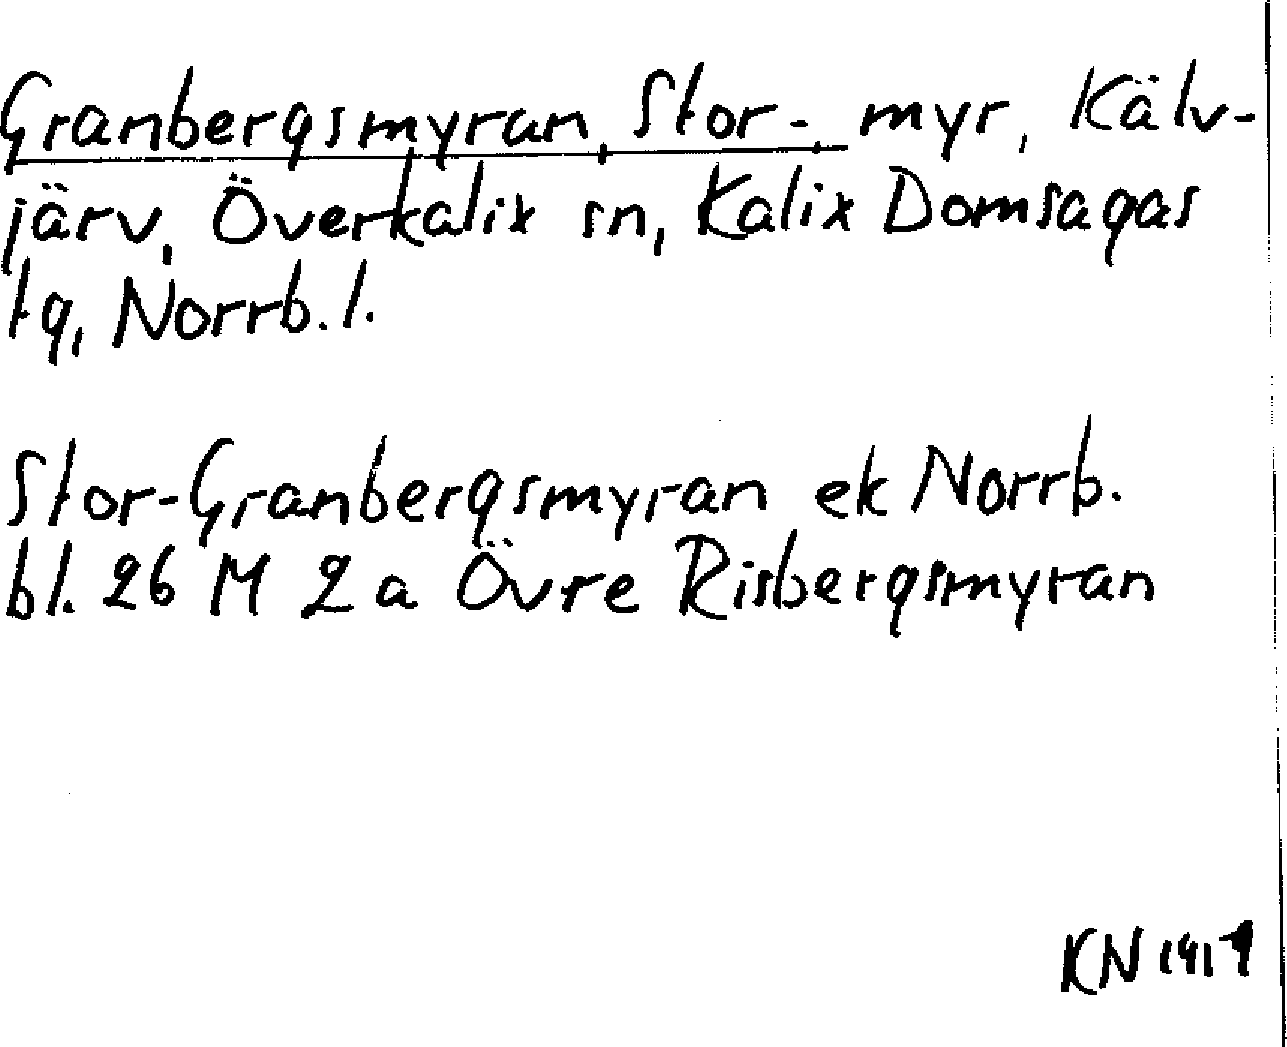 Granbergsmyran, Stor-, myr, Kälv-
järv, Överkalix sn, Kalix Domsagas
tg, Norrb. l.
Stor-Granbergsmyran ek Norrb.
bl. 26 M 2 a Övre Risbergsmyran
KN